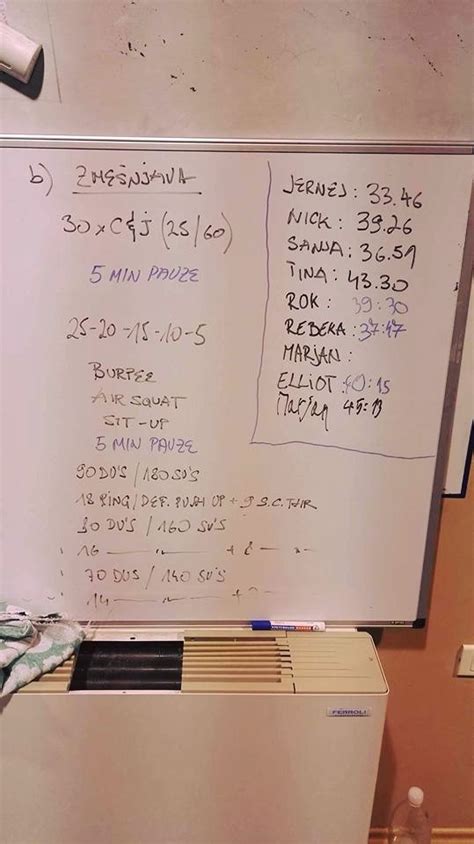 b) ZMEŠNJAVA
30 x C&J (25/60)
5 MIN PAUZE
25-20-15-10-5
BURPEE
AIR SQUAT
SIT-UP
5 MIN PAUZE
90 DU'S / 180 SU'S
18 RING/DEF. PUSH UP + 9 S.C.
80 DU'S / 160 SU'S
16 — " — + 8 — " —
70 DUS / 140 SU'S
14 — " — +
JERNEJ: 33.46
NICK: 39.26
SANJA: 36.59
TINA: 43.30
ROK: 39:30
REBEKA: 37:47
MARJAN:
ELLIOT: 40:15
Marjan 45:13
FERROLI